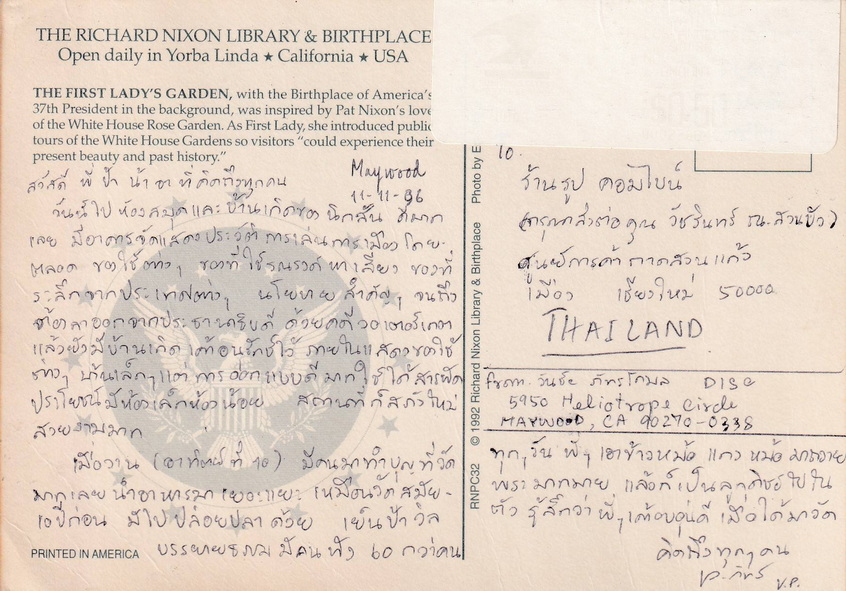 THE RICHARD NIXON LIBRARY & BIRTHPLACE
Open daily in Yorba Linda ★ California ★ USA
THE FIRST LADY'S GARDEN, with the Birthplace of America's
37th President in the background, was inspired by Pat Nixon's love
of the White House Rose Garden. As First Lady, she introduced public
tours of the White House Gardens so visitors "could experience their
present beauty and past history."
Maywood
11-11-96
สวัสดี พี่ ป้า น้า อา ที่คิดถึงทุกคน
วันนี้ไป ห้องสมุดและบ้านเกิดของ นิกสัน ดีมาก
เลย มีอาคารจัดแสดงประวัติ การเล่นการเมือง โดย-
ตลอด ของใช้ต่างๆ ของที่ใช้รณรงค์หาเสียง ของที่
ระลึกจากประเทศต่างๆ นโยบายสำคัญๆ จนถึง
ต้องลาออกจากประธานาธิบดี ด้วยคดีวอเตอร์เกต
แล้วยังมีบ้านเกิด เค้าอนุรักษ์ไว้ ภายในแสดงของใช้
ต่างๆ บ้านเล็กๆ แต่การออกแบบดีมาก ใช้ได้สารพัด
ประโยชน์ มีห้องเล็กห้องน้อย สถานที่ก็สภาพใหม่
สวยงามมาก
เมื่อวาน (อาทิตย์ที่ 10) มีคนมาทำบุญที่วัด
มากเลย นำอาหารมา เยอะแยะ เหมือนวัดสมัย-
10 ปีก่อน มีไปปล่อยปลาด้วย เย็นป้าวิล
บรรยายธรรม มีคนฟัง 60 กว่าคน
PRINTED IN AMERICA
RNPC32 © 1992 Richard Nixon Library & Birthplace Photo by E
To.
ร้านรูป คอมไบน์
(กรุณาส่งต่อ คุณ วัชรินทร์ รน. สวนบัว)
ศูนย์การค้า กาดสวนแก้ว
เมือง เชียงใหม่ 50000
THAILAND
from. วันชัย ภัทรโกมล DISC
5950 Heliotrope Circle
MAYWOOD, CA 90270-0338
ทุกๆวัน พี่ๆ เอาข้าวหม้อ แกงหม้อ มาถวาย
พระมากมาย แล้วก็เป็นลูกศิษย์ไปใน
ตัว รู้สึกว่า พี่ๆ เค้าอบอุ่นดี เมื่อได้มาวัด
คิดถึงทุกๆคน
V.P.